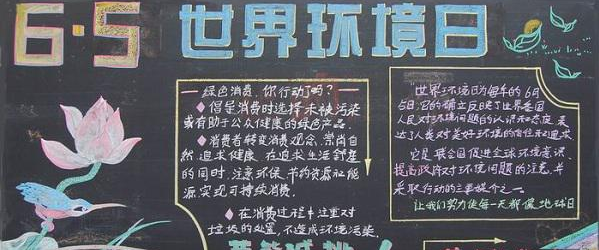 6·5 世界环境日
绿色消费,你行动了吗?
◆倡导消费时选择未被污染
或有助于公众健康的绿色产品.
◆消费者转变消费观念,崇尚自
然追求健康,在追求生活舒适
的同时,注意环保,节约资源和能
源,实现可持续消费.
◆在消费过程中注重对
垃圾的处置,不造成环境污染.
节能减排
世界环境日为每年的6月
5日,它的确立反映了世界各国
人民对环境问题的认识和态度,表
达了人类对美好环境的向往和追求
它是联合国促进全球环境意识、
提高政府对环境问题的注意并
采取行动的主要媒介之一.
让我们努力使每一天都像地球日